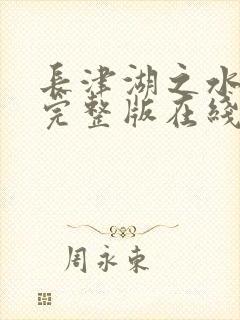 長津湖之水
完整版在綫
周永東